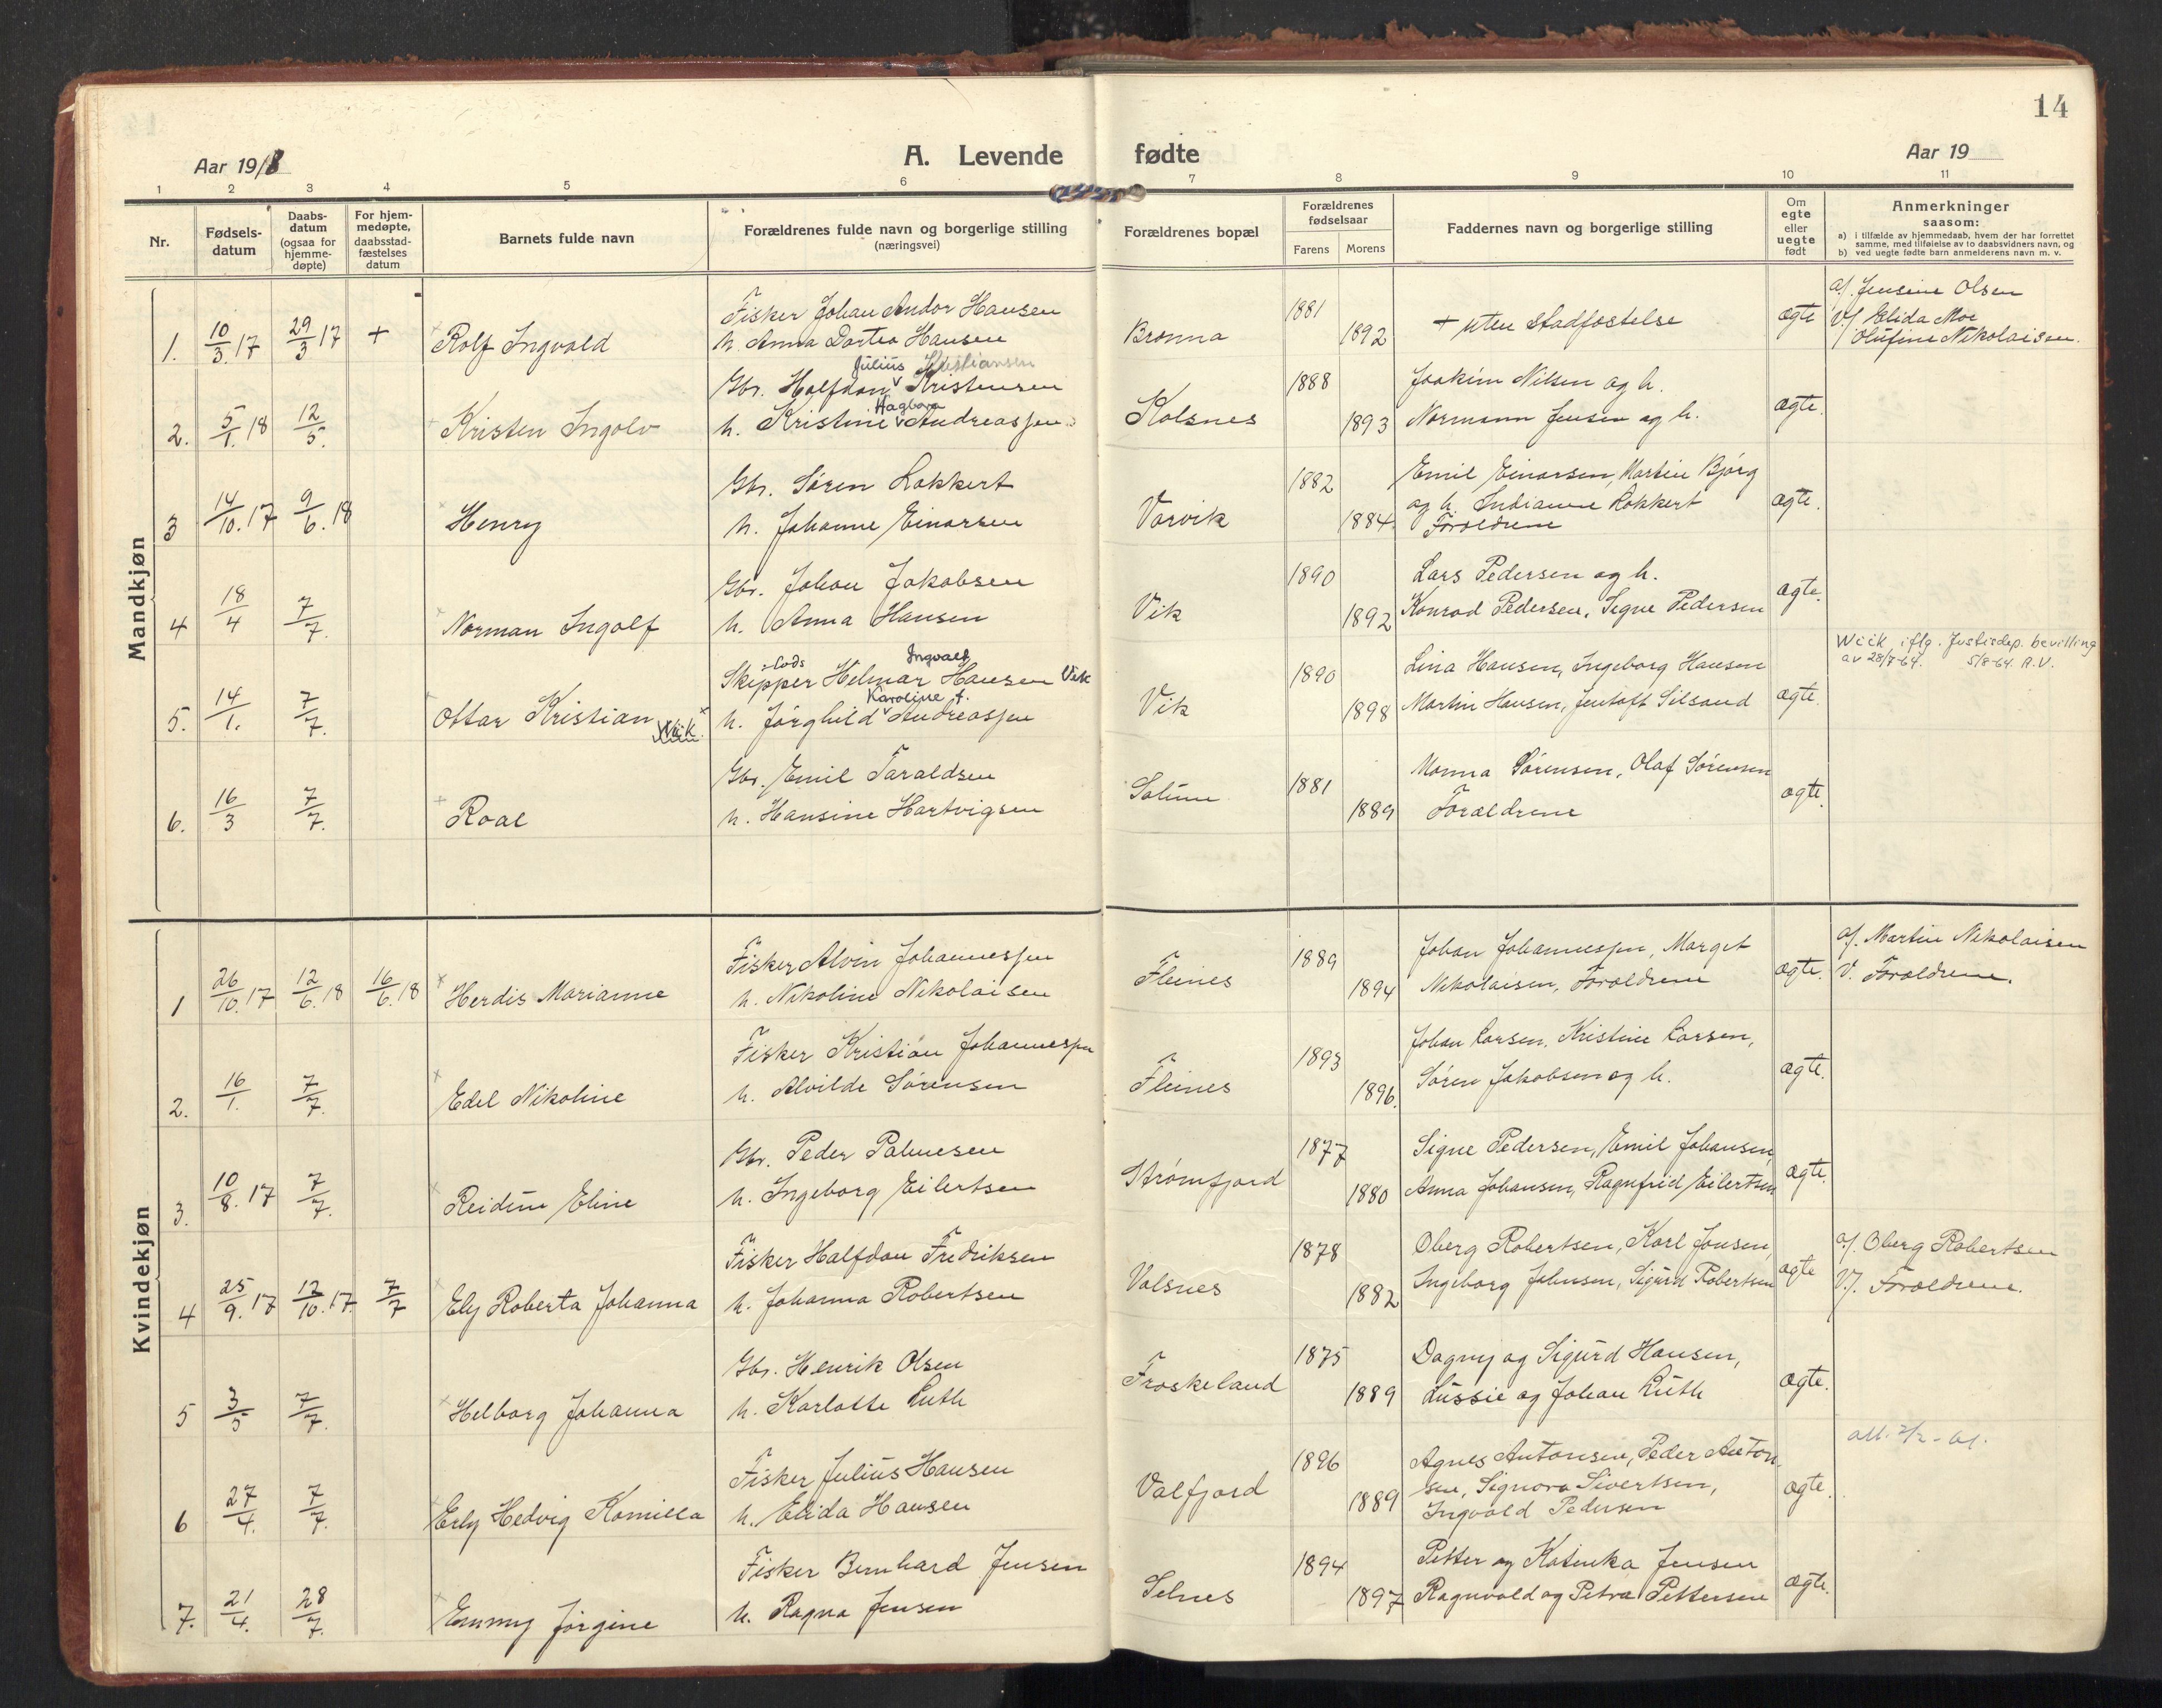 14
Aar 1918 A. Levende fødte Aar 19
1 2 3 4 5 6 7 8 9 10 11
Nr.
Fødsels-datum
Daabs-datum (ogsaa for hjemme-døpte)
For hjem-medøpte, daabsstad-fæstelses datum
Barnets fulde navn
Forældrenes fulde navn og borgerlige stilling
(næringsvei)
Forældrenes bopæl
Forældrenes fødselsaar
Farens Morens
Faddernes navn og borgerlige stilling
Om egte eller uegte født
Anmerkninger
saasom:
a) i tilfælde av hjemmedaab, hvem der har forrettet
samme, med tilføielse av to daabsvidners navn, og
b) ved uegte fødte barn anmelderens navn m. v.
Mandkjøn
1. 10/3.17 29/3 17 + Rolf Ingvald
Fisker Johan Andor Hansen
h. Anna Dortea Hansen
Bronna 1881 1892 + uten stadfæstelse ægte
af. Jensine Olsen
V/ Elida Moe
Olufine Nikolaisen.
2. 5/1.18 12/5. Kristen Ingolv
Julius Kristiansen
Gbr. Halfdan Kristensen
Hagbora
h. Kristine Andreassen
Kolsnes 1888 1893
Joakim Nilsen og h.
Normann Jensen og h.
ægte.
3 14/10.17 9/6.18 Henry
Gbr. Søren Lokkert
h. Johanne Einarsen
Vorvik 1882 1884
Emil Einarsen, Martin Bjørg
og h. Indianne Lokkert
Foroldrene
ægte.
4 18/4 7/7. Norman Ingolf
Gbr. Johan Jakobsen
h. Anna Hansen
Vik 1890 1892
Lars Pedersen og h.
Konrad Pedersen, Signe Pedersen
ægte.
5. 14/1. 7/7. Ottar Kristian Wiik
Lods Ingvald
Skipper Helmar Hansen Vik
Karoline f.
h. Jørghild Andreassen
Vik 1890 1898
Lina Hansen, Ingeborg Hansen
Martin Hansen, Jentoft Silsand
ægte.
Wiik iflg. Justisdep. bevilling
av 28/7-64. 5/8-64. A.V.
6. 16/3 7/7. Roal
Gbr. Emil Taraldsen
h. Hansine Hartvigsen
Solum 1881 1889
Monna Sørensen, Olaf Sørensen
Foræoldrene
ægte.
Kvindekjøn
1 26/10.17 12/6.18 16/6.18 Herdis Marianne
Fisker Alvin Johannessen
h. Nikoline Nikolaisen
Fleines 1889 1894
Johan Johannessen, Marget
Nikolaisen, Foroldrene
ægte.
af. Martin Nikolaisen
V. Foroldrene.
2. 16/1. 7/7. Edel Nikoline
Fisker Kristian Johannessen
h. Alvilde Sørensen
Fleines 1893 1896.
Johan Larsen, Kristine Larsen,
Søren Jakobsen og h.
ægte.
3. 10/8.17 7/7. Reidun Eline
Gbr. Peder Palmesen
h. Ingeborg Eilertsen
Strømfjord 1877 1880
Signe Pedersen, Emil Johansen,
Anna Johansen, Ragnfrid Eilertsen
ægte.
4 25/9.17 12/10.17. 7/7 Ely Roberta Johanna
Fisker Halfdan Fredriksen
h. Johanna Robertsen
Valsnes 1878 1882
Oberg Robertsen, Karl Jonsen,
Ingeborg Johnsen, Sigurd Robertsen
ægte
af. Oberg Robertsen
V/. Foroldrene.
5 3/5 7/7. Helborg Johanna
Gbr. Henrik Olsen
h. Karlotte Luth
Froskeland 1875 1889
Dagny og Sigurd Hansen,
Lussie og Johan Luth
ægte.
6 27/4. 7/7. Erly Hedvig Komilla
Fisker Julius Hansen
h. Elida Hansen
Valfjord 1896 1889
Agnes Antonsen, Peder Anton
sen, Signora Sivertsen,
Ingvald Pedersen
ægte.
7. 21/4. 28/7. Emmy Jørgine
Fisker Bernhard Jensen
h. Ragna Jensen
Selnes 1894 1897
Petter og Katinka Jensen
Ragnvald og Petra Pettersen
ægte.